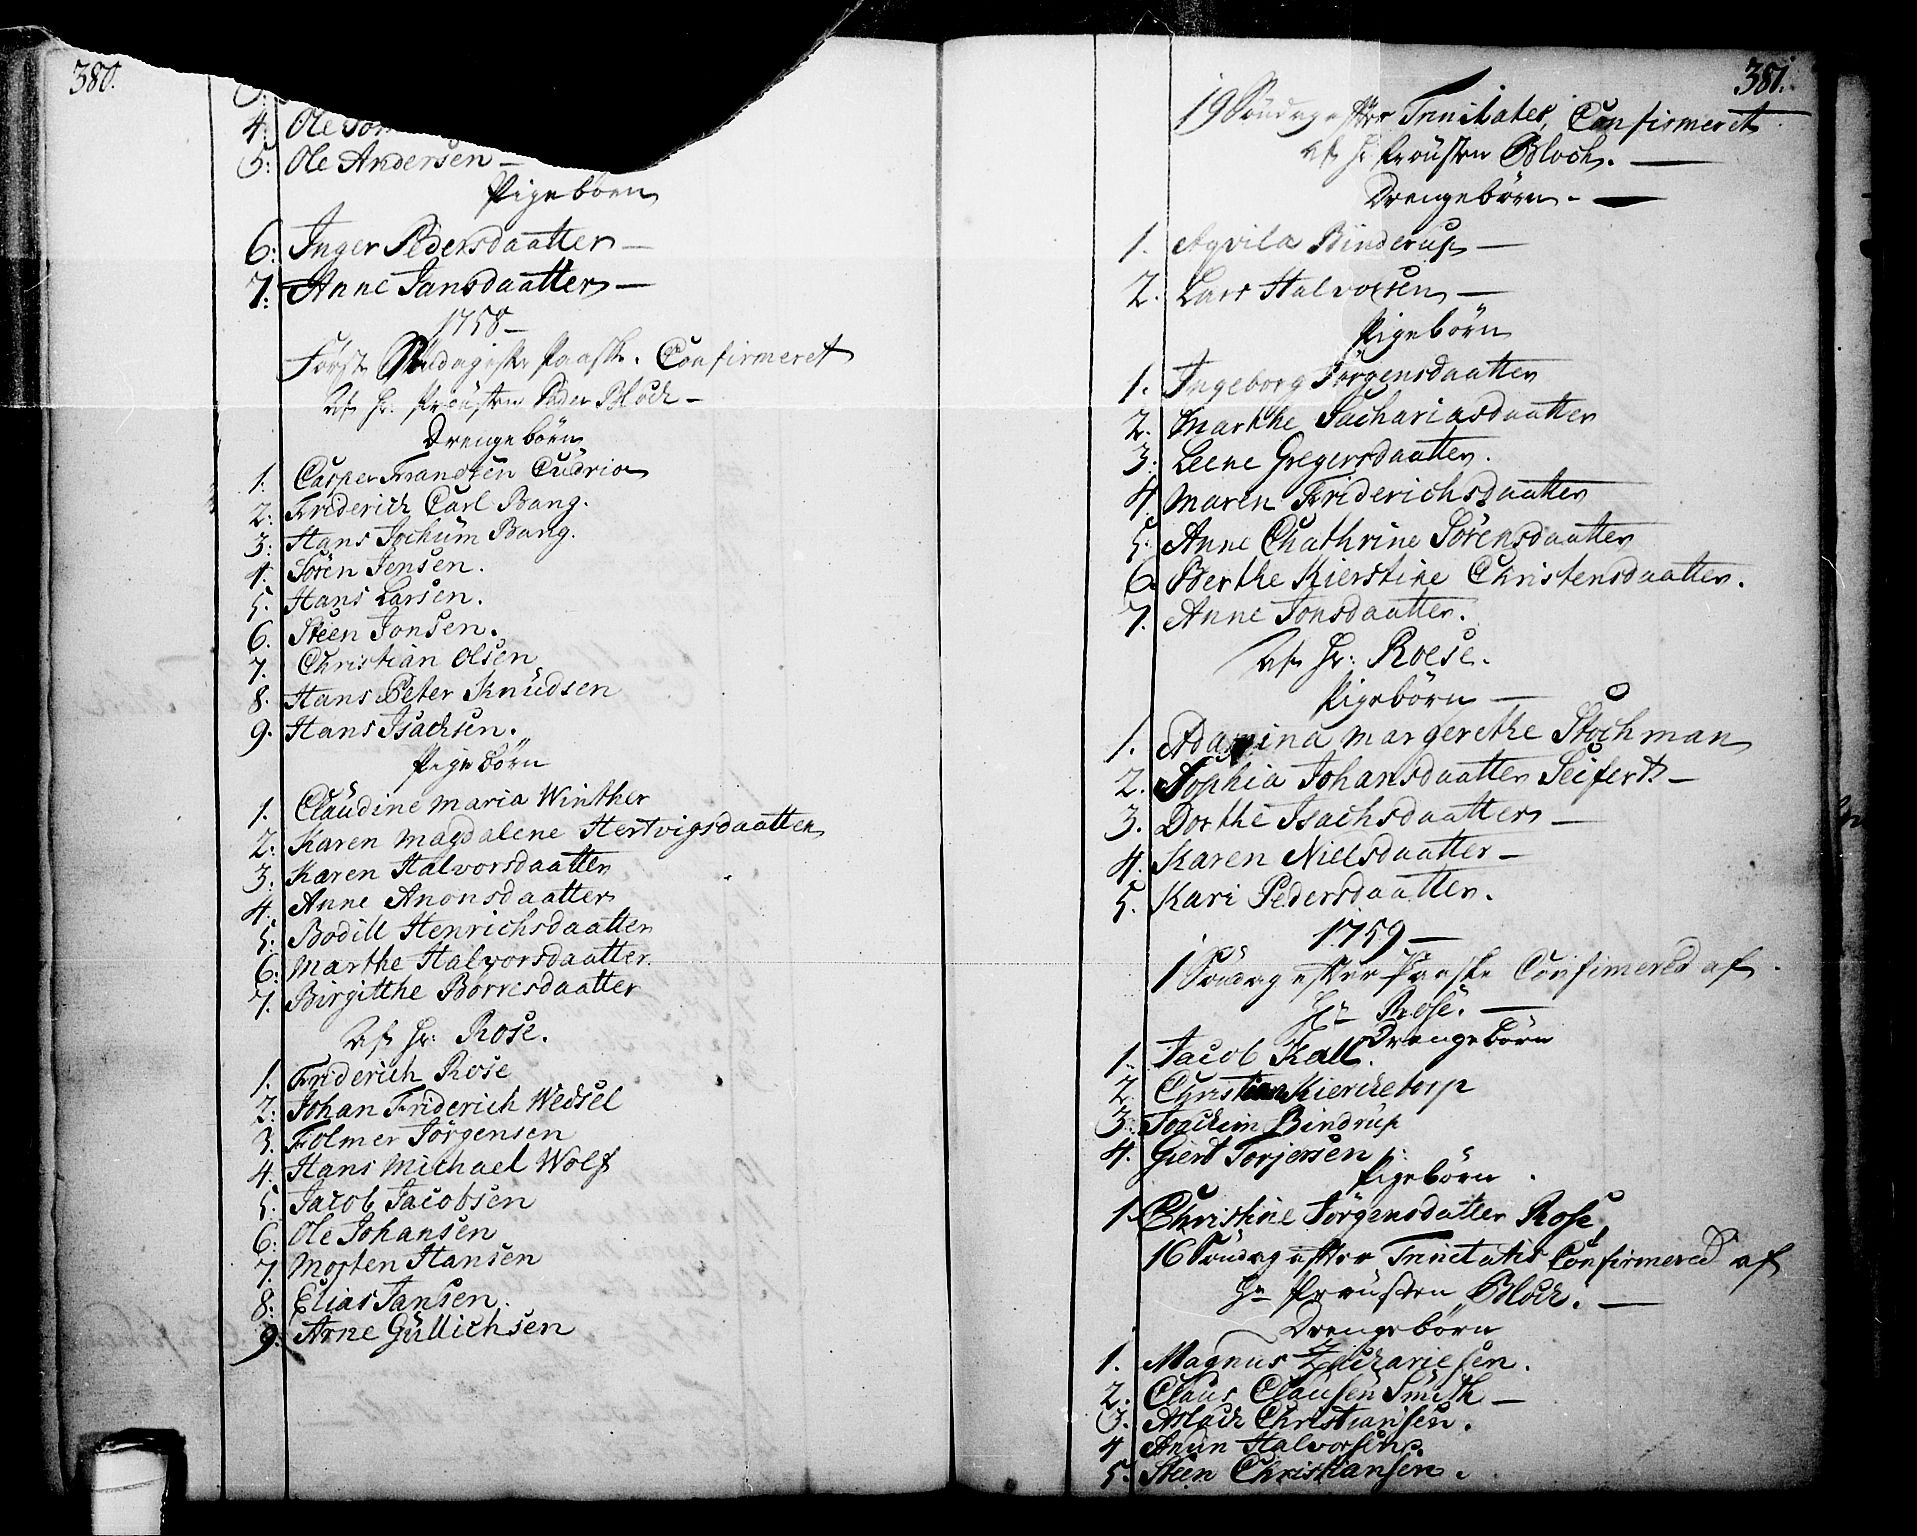 380.
3.
4. Ole
5. Ole Andersen —
Pigebørn
6: Inger Pedersdaatter —
7: Anne Jansdaatter —
1758 —
Første Søndag efter Paaske. Confirmeret
af Hr. Prousten Peder Bloch —
Drengebørn
1. Casper Frandsen Cudrio
2: Friderich Carl Bang.
3: Hans Jochum Bang.
4. Sören Jensen.
5. Hans Larsen.
6. Steen Jonsen.
7. Christian Olsen
8. Hans Peter Knudsen
9. Hans Isachsen.
Pigebörn
1. Claudine Maria Winther
2: Karen Magdalene Hertvigsdaatter
3. Karen Halvorsdaatter
4. Anne Anonsdaatter
5: Bodill Henrichsdaatter
6: Marthe Halvorsdaatter.
7. Birgitthe Börresdaatter
af Hr: Rose.
1. Friderich Rose
2: Johan Friderich Wedsel
3. Folmer Jörgensen
4. Hans Michael Wolf
5. Jacob Jacobsen
6: Ole Johansen
7. Morten Hansen
8: Elias Jansen.
9. Arne Gullichsen
381.
19 Söndag efter Trinitates, Confirmeret
af Hr Prousten Bloch. —
Drengebörn. —
1. Aqvila Binderup —
2. Lars Halvorsen —
Pigebörn
1. Ingeborg Jörgensdaatter
2. Marthe Sachariasdaatter
3: Leene Gregersdaatter.
4. Maren Friderichsdaatter
5: Anne Chathrine Sörensdaatter
6. Berthe Kierstine Christensdaatter.
7. Anne Jonsdaatter.
Af Hr: Roese.
Pigebörn —
1. Adamina Margerethe Stochman
2. Sophia Johansdaatter Seifert —
3. Dorthe Isachsdaatter —
4. Karen Nielsdaatter —
5. Kari Pedersdaatter.
1759 —
1 Söndag efter Paaske Confimered af
Hr Rose. —
Drengebörn
1. Jacob Kall.
2. Christian Kierchetorp
3: Joachim Bindrup
4. Giert Torjersen
Pigebörn
1. Christine Jörgensdatter Rose
16 Söndag efter Trinitatis Confirmered af
Hr Prousten Bloch. —
Drengebörn
1. Magnus Zachariesen.
2: Claus Clausen Smith —
3. Aslach Christiansen.
4 Anun Halvorsen
5. Steen Christiansen.